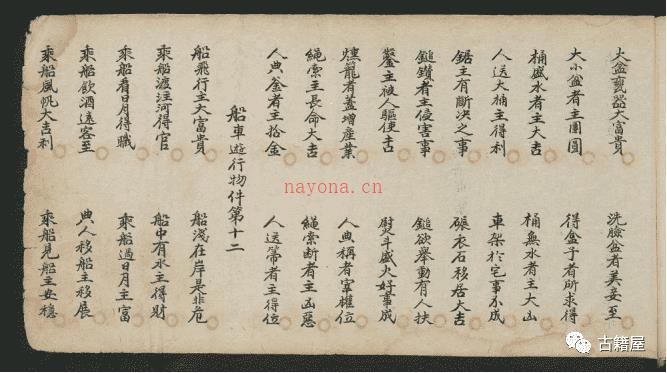 大盆 器大富貴　洗臉盆者美妾至
大小盆者主團圓　得盒子者所求得
桶盛水者主大吉　桶無水者主大凶
人送大桶主得利　車架於宅事不成
鋸主有斷决之事　衣石移居大吉
鎚鑽者主侵害事　鎚欲舉動有人扶
鏊主被人驅使吉　熨斗盛火好事成
燻籠有蓋增産業　人與稱者掌權位
繩索主長命大吉　繩索断者主凶惡
人與釜者主拾金　人送箒者主得位
船車遊行物件第十二
船飛行主大富貴　船淺在岸是非危
乘船渡江河得官　船中有水主得財
乘船看日月得職　乘船過日月主富
乘船飲酒遠客至　與人移船主移展
乘船風帆大吉利　乘船見船主安穩
nayona.cn
古籍屋